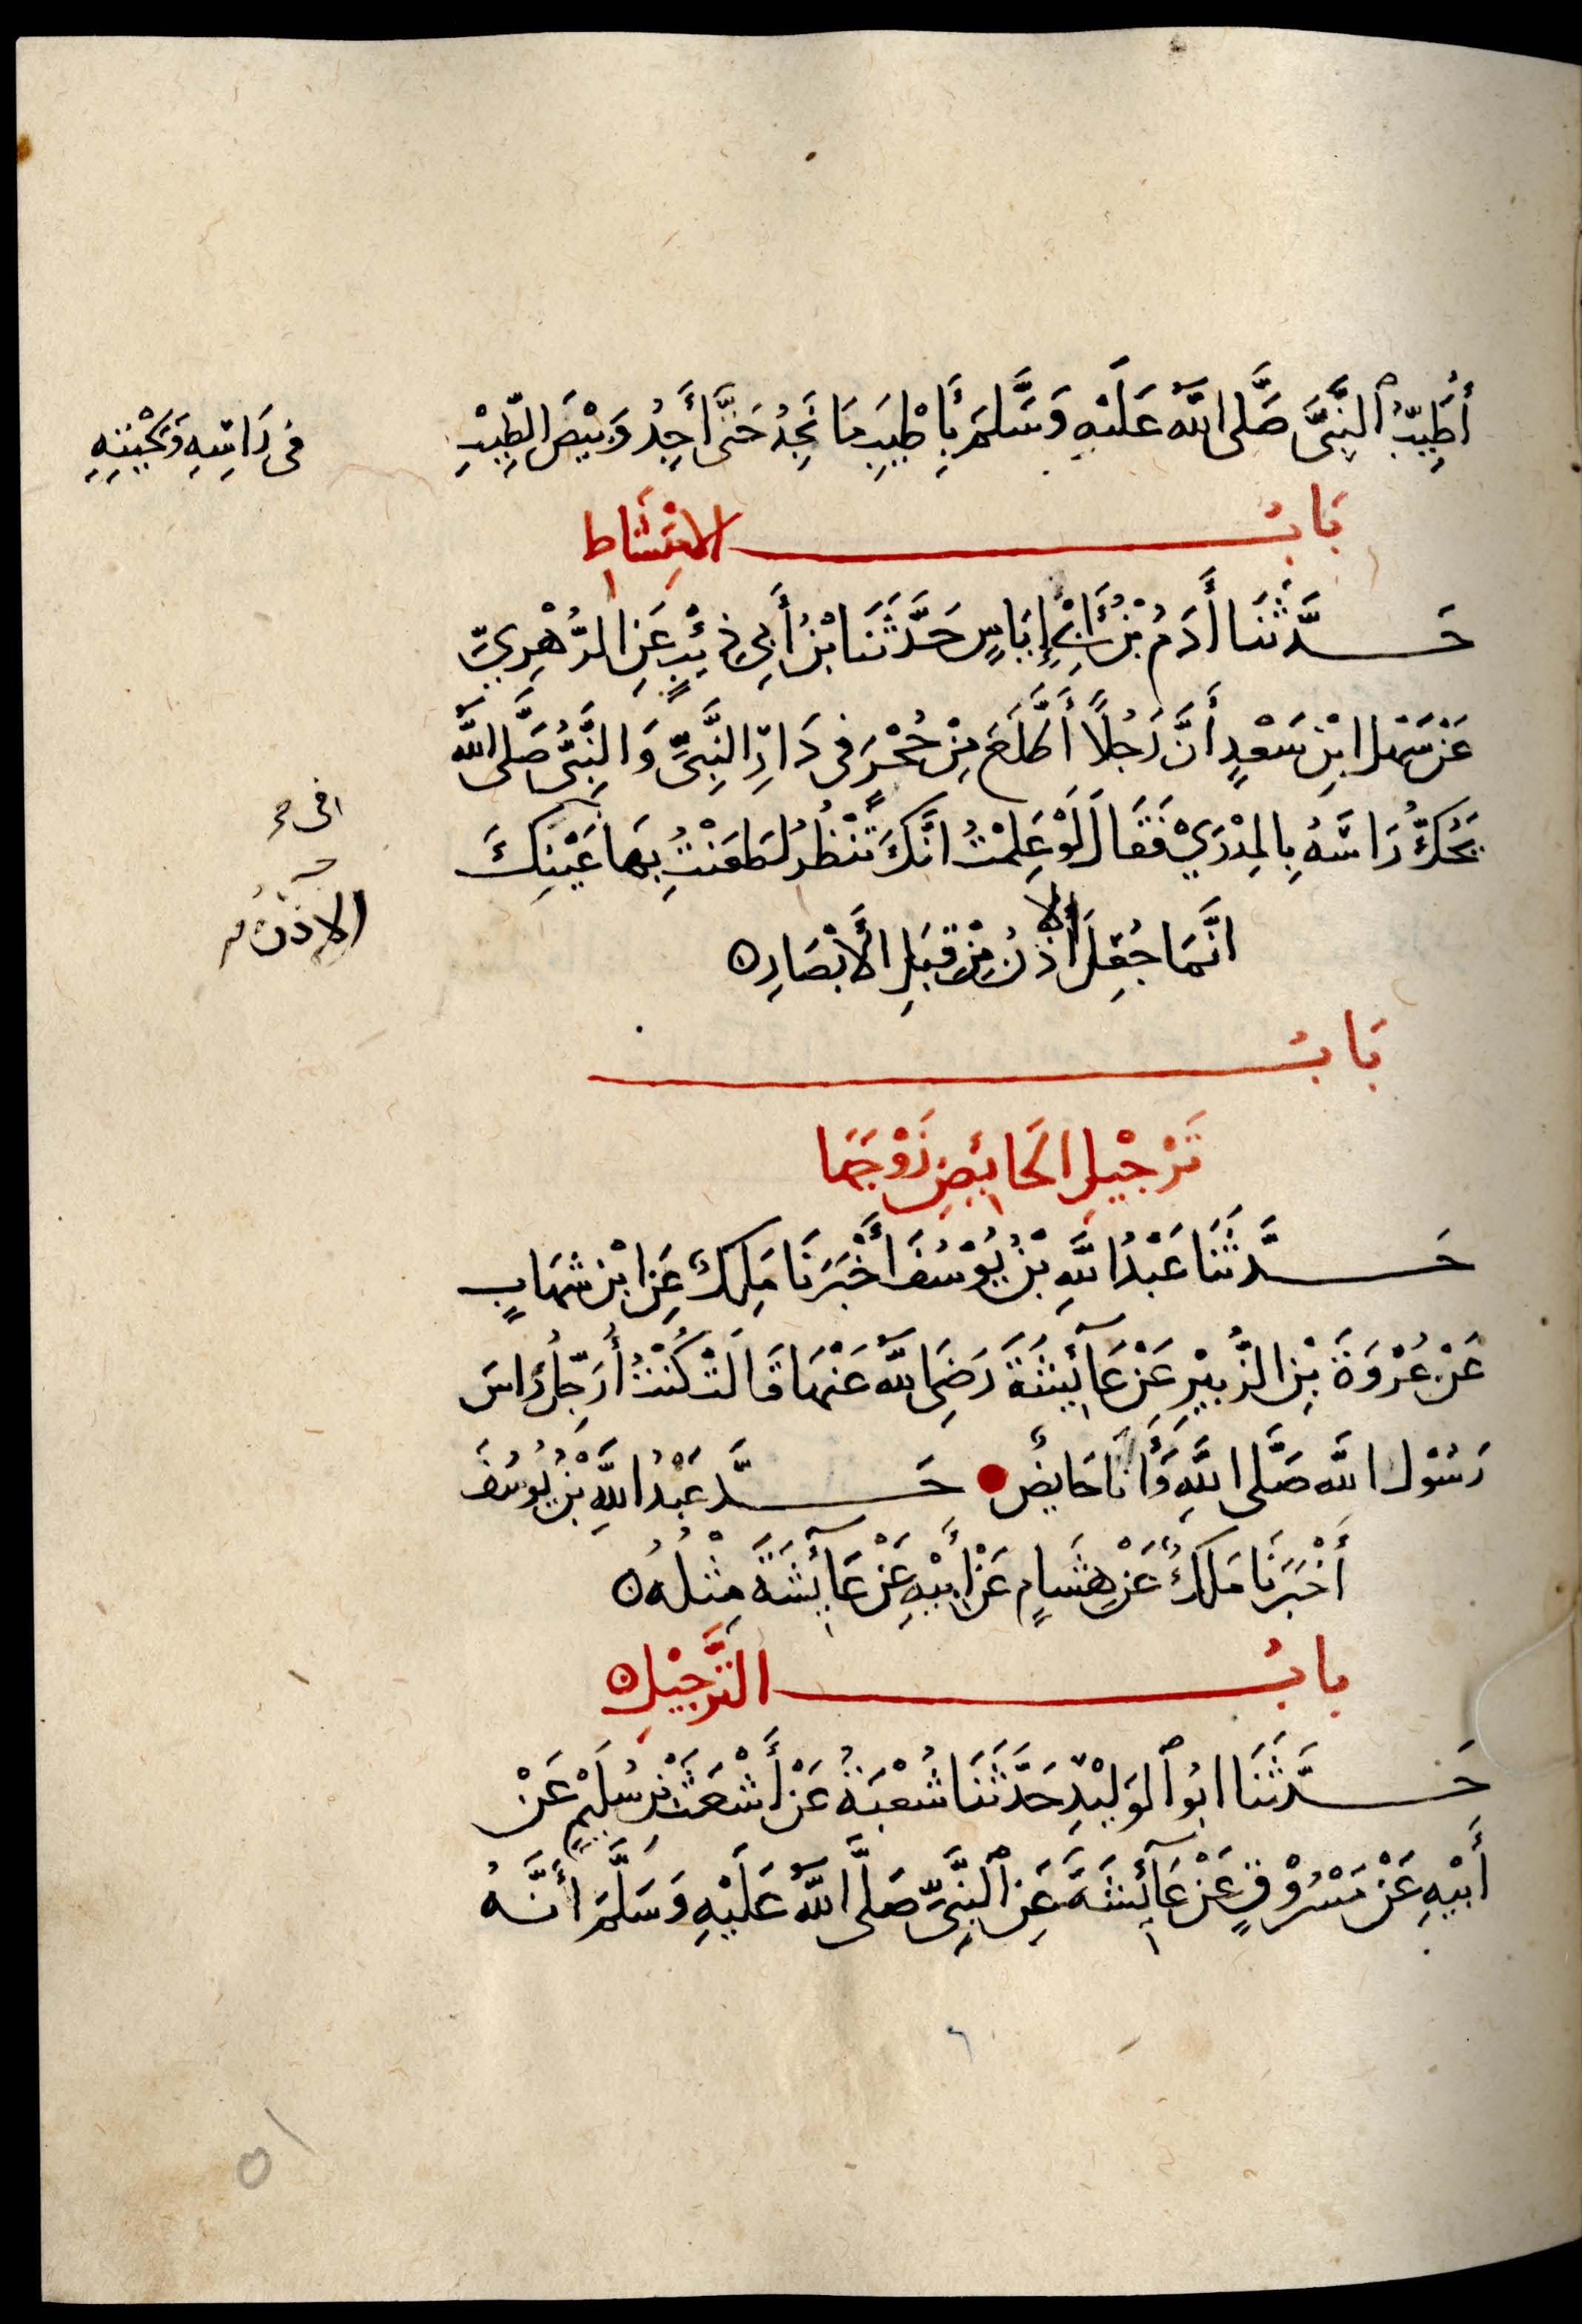 أُطَيِّبُ ٱلنَّبِيَّ صَلَّى اللَّهُ عَلَيْهِ وَسَلَّمَ بِأَطْيَبِ مَا نَجِدُ حَتَّى أَجِدُ وَبِيْصَ الطِّيْبِ
فى رَاسِهِ وَلِحْيَتِهِ
بَابُ الامْتِشَاطِ
حَدَّثَنَا أَدَمُ بْنُ أَبِي إِيَاسٍ حَدَّثَنَا بْنُ أَبِي ذِئْبٍ عَنِ الزُّهْرِيِّ
عَنْ سَهْل ابْنِ سَعْدٍ أَنَّ رَجُلًا أَطَّلَعَ مِنْ حُجْرٍ فى دَارِ النَّبِيِّ وَالنَّبِيُّ صَلَّى اللَّهُ
يَحُكُّ رَاسَهُ بِالمِدْرَيْ فَقَالَ لَوْ عَلِمْتُ انَّكَ تَنْظُرُ لَطَعَنْتُ بِهَا عَيْنِكَ
انَّمَا جُعِلَ الأذْنُ مِنْ قِبَلِ الأَبْصَارِ ه
الاذن
بَابُ
تَرْجِيْلِ الحَائِضِ زَوْجَهَا
حَدَّثَنَا عَبْدُ اللَّهِ بْنُ يُوْسُفَ أَخْبَرَنَا مَلِكٌ عَنِ ابْنِ شهَابٍ
عَنْ عُرْوَةَ بْنِ الزُّبَيْرِ عَنْ عَآئِشَةَ رَضِيَ اللَّهُ عَنْهَا قَالَتْ كُنْتُ أُرَجِّلُ رَاسَ
رَسُوْل اللَّه صَلَّى اللَّهِ وَأَنَا حَايِضٌ حَدَّ عَبْدُ اللَّهِ بْنُ يُوسُفَ
أَخْبَرَنَا مَلكٌ عَنْ هِشَامٍ عَنْ أَبِيْهِ عَنْ عَآئِشَةَ مِثْلُهُ ه
بابُ التَّرْجِيْلِ ه
حَدَّثَنَا ابُو ٱلوَلِيْدِ حَدَّثَنَا شُعْبَةُ عَنْ أَشْعَثَ بْنِ سُلَيْمٍ عَنْ
أَبِيْهِ عَنْ مَسْرُوْقٍ عَنْ عَآئِشَةَ عَنِ ٱلنَّبِيِّ صَلَّى اللَّهُ عَلَيْهِ وَسَلَّمَ أَنَّهُ